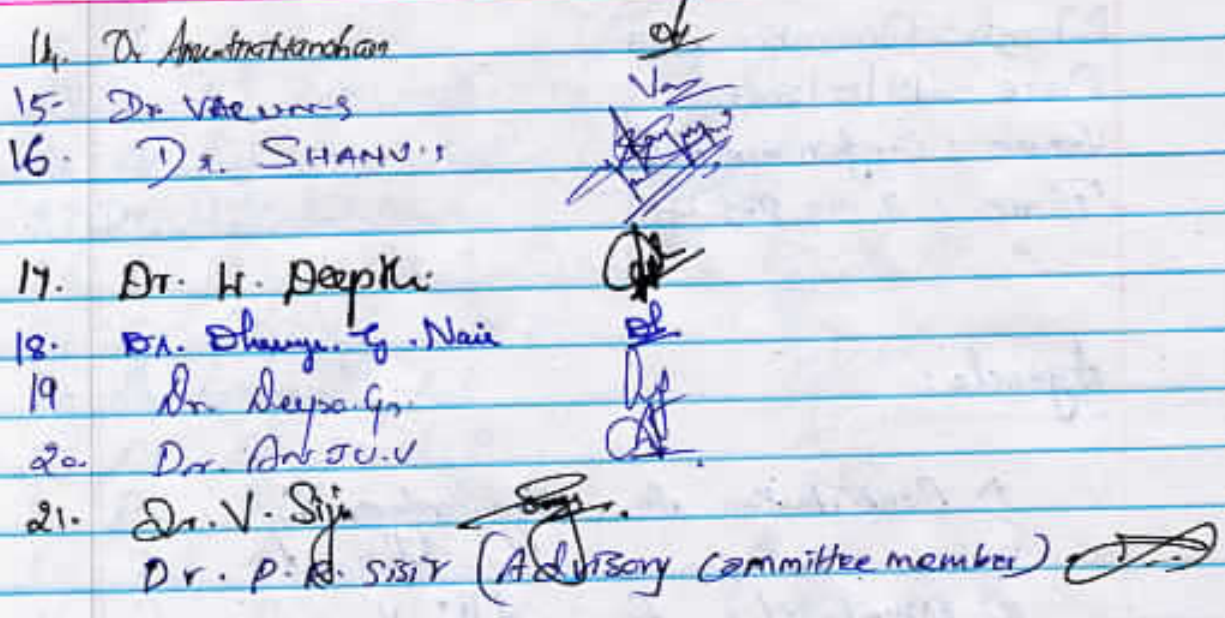 14. Dr
15- Dr VARUN S
16. Dr. SHANU.S
17. Dr. H. Deepthi.
18. DR. Dhanya. G. Nair
19 Dr. Deepa. G.
20. Dr. ANJU.V
21. Dr. V. Siji
Dr. P. K. SISIR (Advisory Committee member)